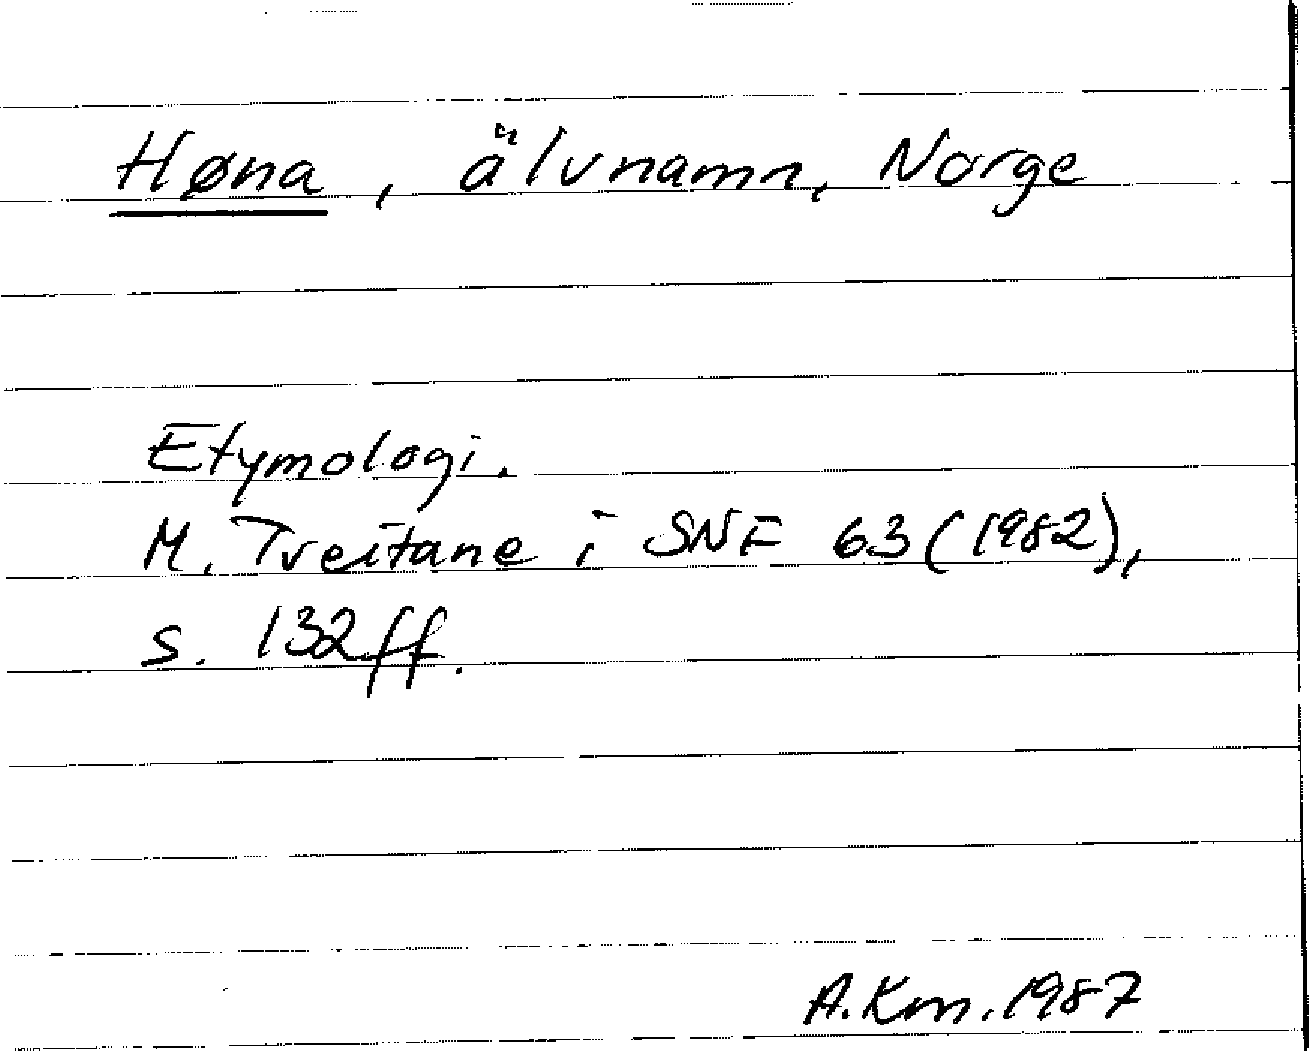 Høna, älvnamn, Norge
Etymologi.
M. Tveitane i SNF 63 (1982),
s. 132 ff.
A.Km. 1987